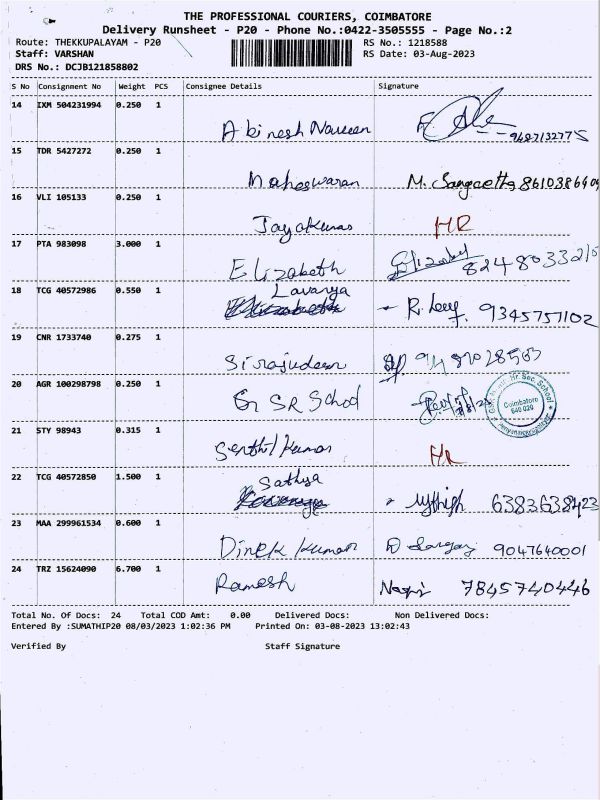 THE PROFESSIONAL COURIERS, COIMBATORE
Delivery Runsheet - P20 - Phone No.:0422-3505555 - Page No.:2
Route: THEKKUPALAYAM - P20 RS No.: 1218588
Staff: VARSHAN RS Date: 03-Aug-2023
DRS No.: DCJB121858802
S No Consignment No Weight PCS Consignee Details Signature
14 IXM 504231994 0.250 1
Abinesh Naveen 9487132775
15 TDR 5427272 0.250 1
Maheswaran M. Sangeetha 8610386404
16 VLI 105133 0.250 1
Jayakumar HR
17 PTA 983098 3.000 1
Elizabeth Elizabeth 8248033215
18 TCG 40572986 0.550 1
Lavanya
R. 9345757102
19 CNR 1733740 0.275 1
Sirajudeen
20 AGR 100298798 0.250 1
G SR School
Hr. Sec. School
Coimbatore
641 020
21 STY 98943 0.315 1
Senthil kumar HR
22 TCG 40572850 1.500 1
Sathya
6383638423
23 MAA 299961534 0.600 1
Dinek kumar D 9047640001
24 TRZ 15624090 6.700 1
Ramesh 7845740446
Total No. Of Docs: 24 Total COD Amt: 0.00 Delivered Docs: Non Delivered Docs:
Entered By :SUMATHIP20 08/03/2023 1:02:36 PM Printed On: 03-08-2023 13:02:43
Verified By Staff Signature